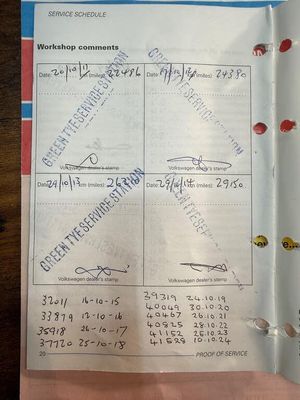 SERVICE SCHEDULE
Workshop comments
Date: 20/10/11 (miles): 22486
Date (miles): 24380
GREEN TYE SERVICE STATION
GREEN TYE SERVICE STATION
Volkswagen dealer's stamp
Volkswagen dealer's stamp
Date: 29/10/13 km (miles):
Date: (miles): 29150
GREEN TYE SERVICE STATION
GREEN TYE SERVICE STATION
Volkswagen dealer's stamp
Volkswagen dealer's stamp
32011 16-10-15
33879 12-10-16
35918 26-10-17
37720 25-10-18
39319 24.10.19
40049 30.10.20
40467 26.10.21
40825 28.10.22
41152 26.10.23
41528 10.10.24
20
PROOF OF SERVICE